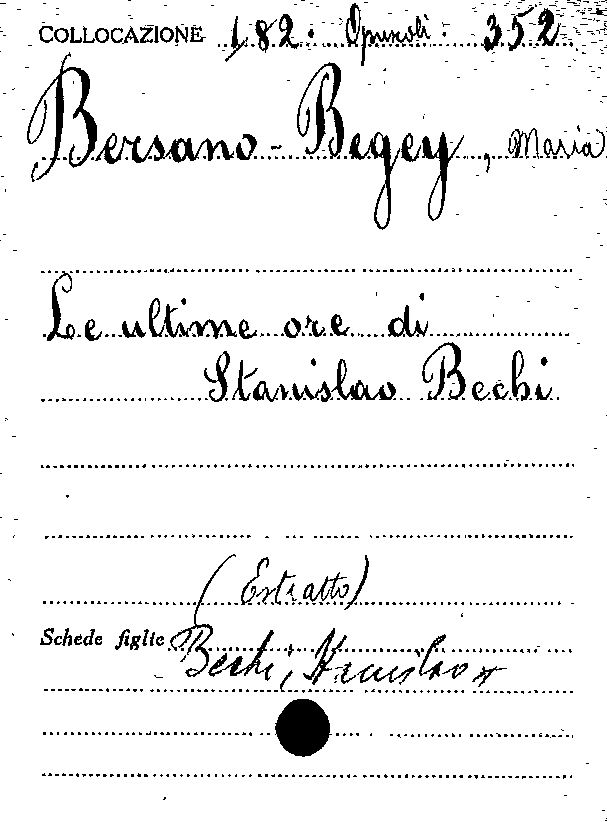 COLLOCAZIONE 182. Opuscoli. 352
Bersano-Begey, Maria
Le ultime ore di
Stanislao Bechi
(Estratto)
Schede figlie Bechi, Stanislao